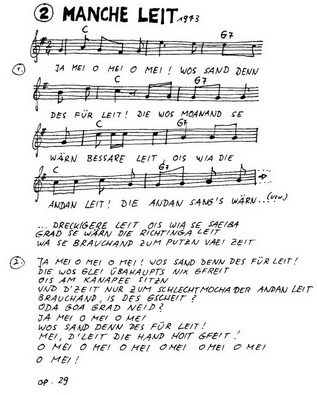 ② MANCHE LEIT 1973
C G7
1. JA MEI O MEI O MEI! WOS SAND DENN
C G7
DES FÜR LEIT! DIE WOS MOANAND SE
C G7
WÄRN BESSARE LEIT, OIS WIA DIE
G7 C
ANDAN LEIT! DIE ANDAN SANG'S WÄRN... (usw.)
... DRECKIGERE LEIT OIS WIA SE SAEIBA
GRAD SE WÄRN DIE RICHTINGA LEIT
WA SE BRAUCHAND ZUM PUTZN VAEI ZEIT
2. JA MEI O MEI O MEI! WOS SAND DENN DES FÜR LEIT!
DIE WOS GLEI ÜBAHAUPTS NIX GFREIT
OIS AM KANAPEE SITZN
UND D'ZEIT NUR ZUM SCHLECHTMOCHA DER ANDAN LEIT
BRAUCHAND, IS DES GSCHEIT?
ODA GOA GRAD NEID?
JA MEI O MEI O MEI
WOS SAND DENN DES FÜR LEIT!
MEI, D'LEIT DIE HAND HOIT GFEIT!
O MEI O MEI O MEI O MEI O MEI O MEI
O MEI!
OP. 29